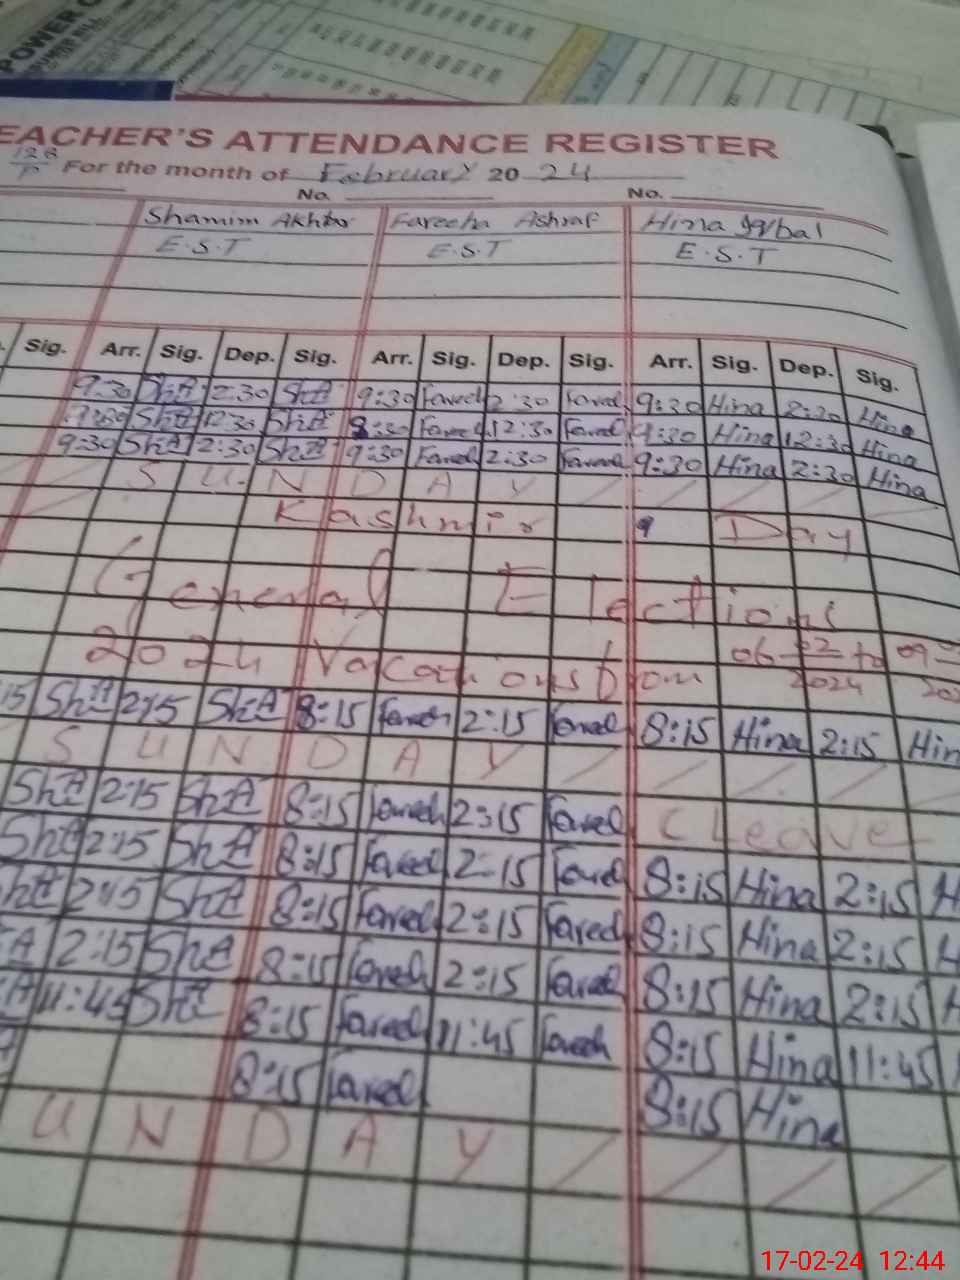 POWER
TEACHER'S ATTENDANCE REGISTER
For the month of February 2024
No. No.
Shamim Akhtar Fareeha Ashraf Hina Iqbal
E.S.T E.S.T E.S.T
Sig. Arr. Sig. Dep. Sig. Arr. Sig. Dep. Sig. Arr. Sig. Dep. Sig.
9:30 ShA 2:30 ShA 9:30 Fareeh 2:30 Fareeh 9:30 Hina 2:30 Hina
9:30 ShA 12:30 ShA 8:30 Fareeh 12:30 Fareeh 9:30 Hina 12:30 Hina
9:30 ShA 2:30 ShA 9:30 Fareeh 2:30 Fareeh 9:30 Hina 2:30 Hina
S U N D A Y
Kashmir Day
General Elections
2024 Vacations from 06-02-2024 to 09
15 ShA 2:15 ShA 8:15 Fareeh 2:15 Fareeh 8:15 Hina 2:15 Hin
S U N D A Y
ShA 2:15 ShA 8:15 Fareeh 2:15 Fareeh C Leave
ShA 2:15 ShA 8:15 Fareeh 2:15 Fareeh 8:15 Hina 2:15 H
hA 2:15 ShA 8:15 Fareeh 2:15 Fareeh 8:15 Hina 2:15 H
A 2:15 ShA 8:15 Fareeh 2:15 Fareeh 8:15 Hina 2:15 H
A 11:45 ShA 8:15 Fareeh 11:45 Fareeh 8:15 Hina 11:45
8:15 Fareeh 8:15 Hina
U N D A Y
17-02-24 12:44